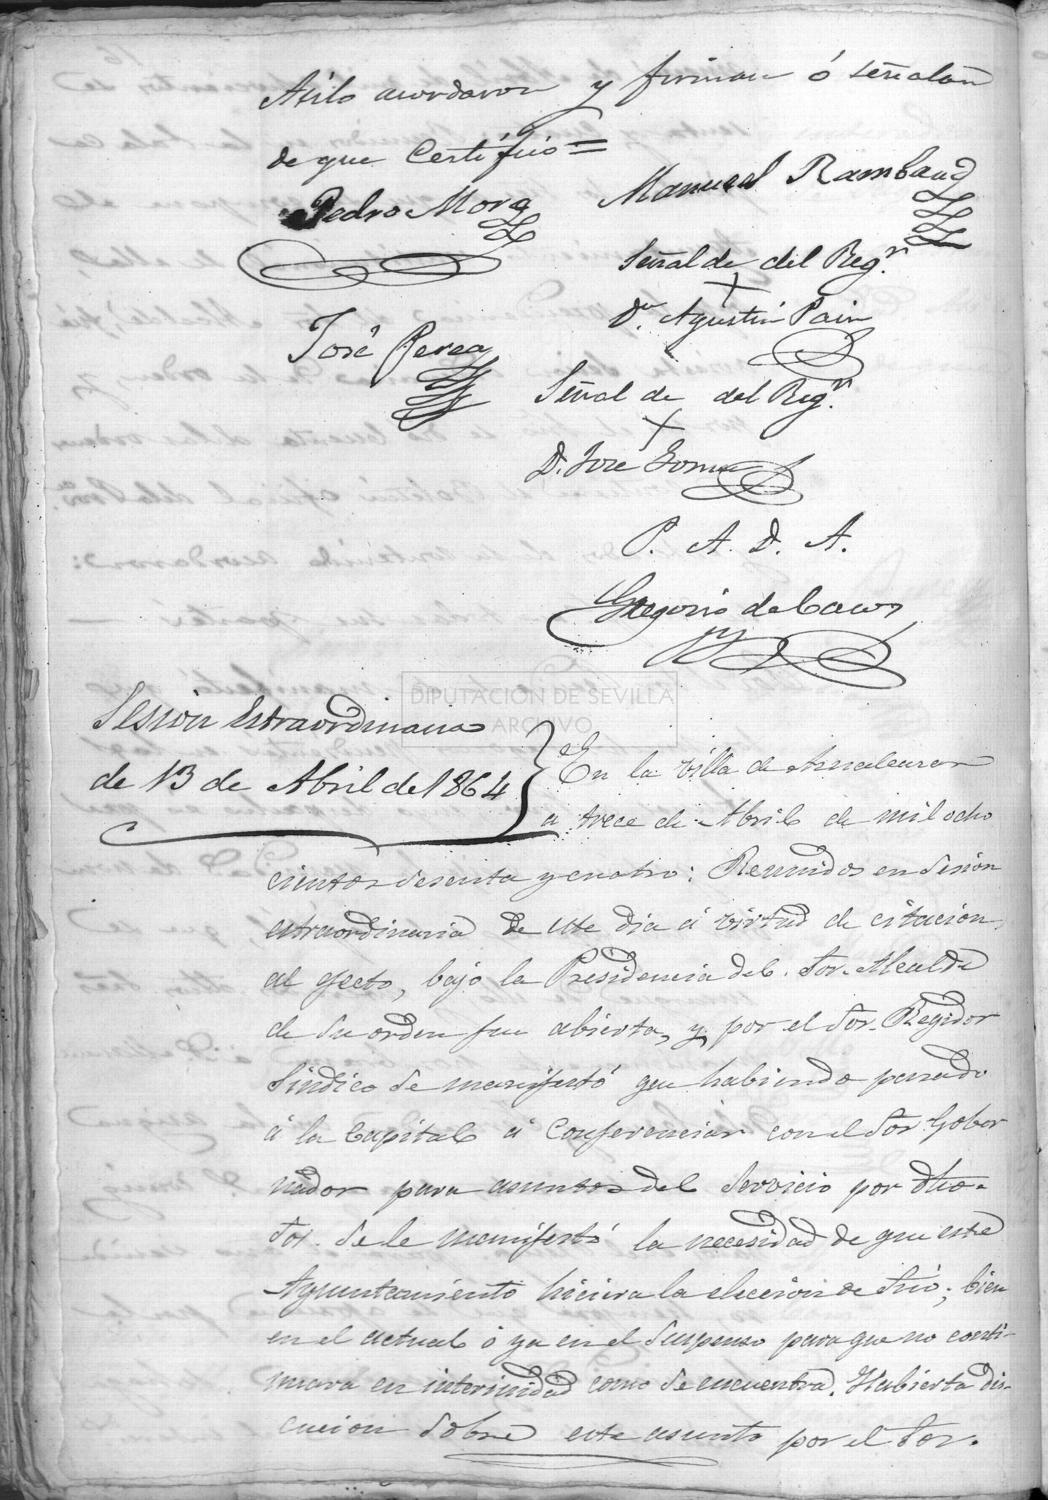 Asi lo acordaron y firman ó señalan
de que Certifico =
Pedro Mora
Manuel Rambaud
Señal de del Regr.
Dn. Agustin Pain
José Perea
Señal de del Regr.
D. José Gomez
P. A. D. A.
Gregorio de Caeos
DIPUTACION DE SEVILLA
ARCHIVO
Sesion Estraordinaria
de 13 de Abril de 1864
En la Villa de Aznalcazar
a trece de Abril de mil ocho
cientos sesenta y cuatro: Reunidos en Sesion
estraordinaria de este dia á virtud de citacion
al efecto, bajo la Presidencia del Sor. Alcalde
de su orden fue abierta, y por el Sor. Regidor
Sindico se manifestó que habiendo pasado
á la Capital á Conferenciar con el Sor. Gober
nador para asuntos del Servicio por dho.
Sor. se le manifestó la necesidad de que este
Ayuntamiento hiciera la eleccion de Srio; bien
en el actual ó ya en el Suspenso para que no conti-
nuara en interinidad como se encuentra. Habierta dis-
cucion sobre este asunto por el Sor.